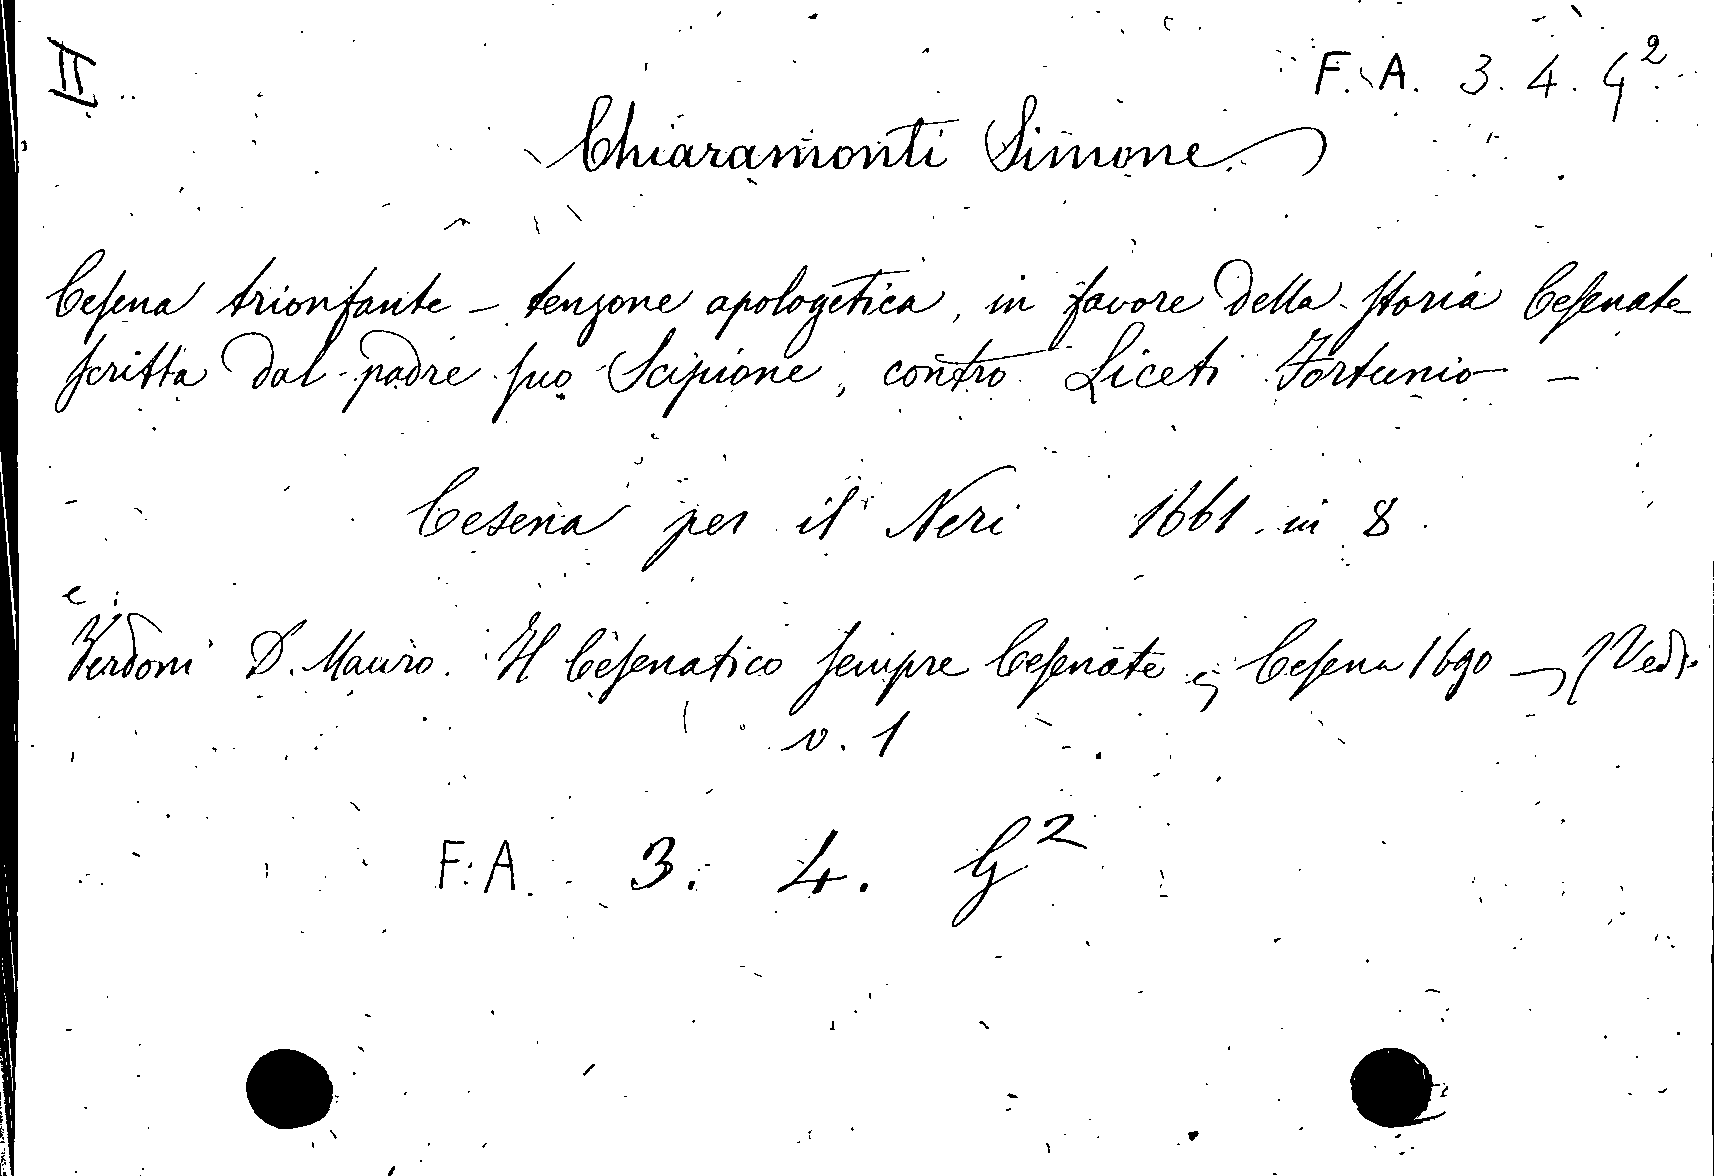 II
F. A. 3. 4. G²
Chiaramonti Simone
Cesena trionfante - tenzone apologetica, in favore della storia Cesenate
scritta dal padre suo Scipione, contro Liceti Fortunio -
Cesena per il Neri 1661. in 8.
e:
Verdoni D. Mauro. Il Cesenatico sempre Cesenate, Cesena 1690 - (Vedi
v. 1
F. A. 3. 4. G²